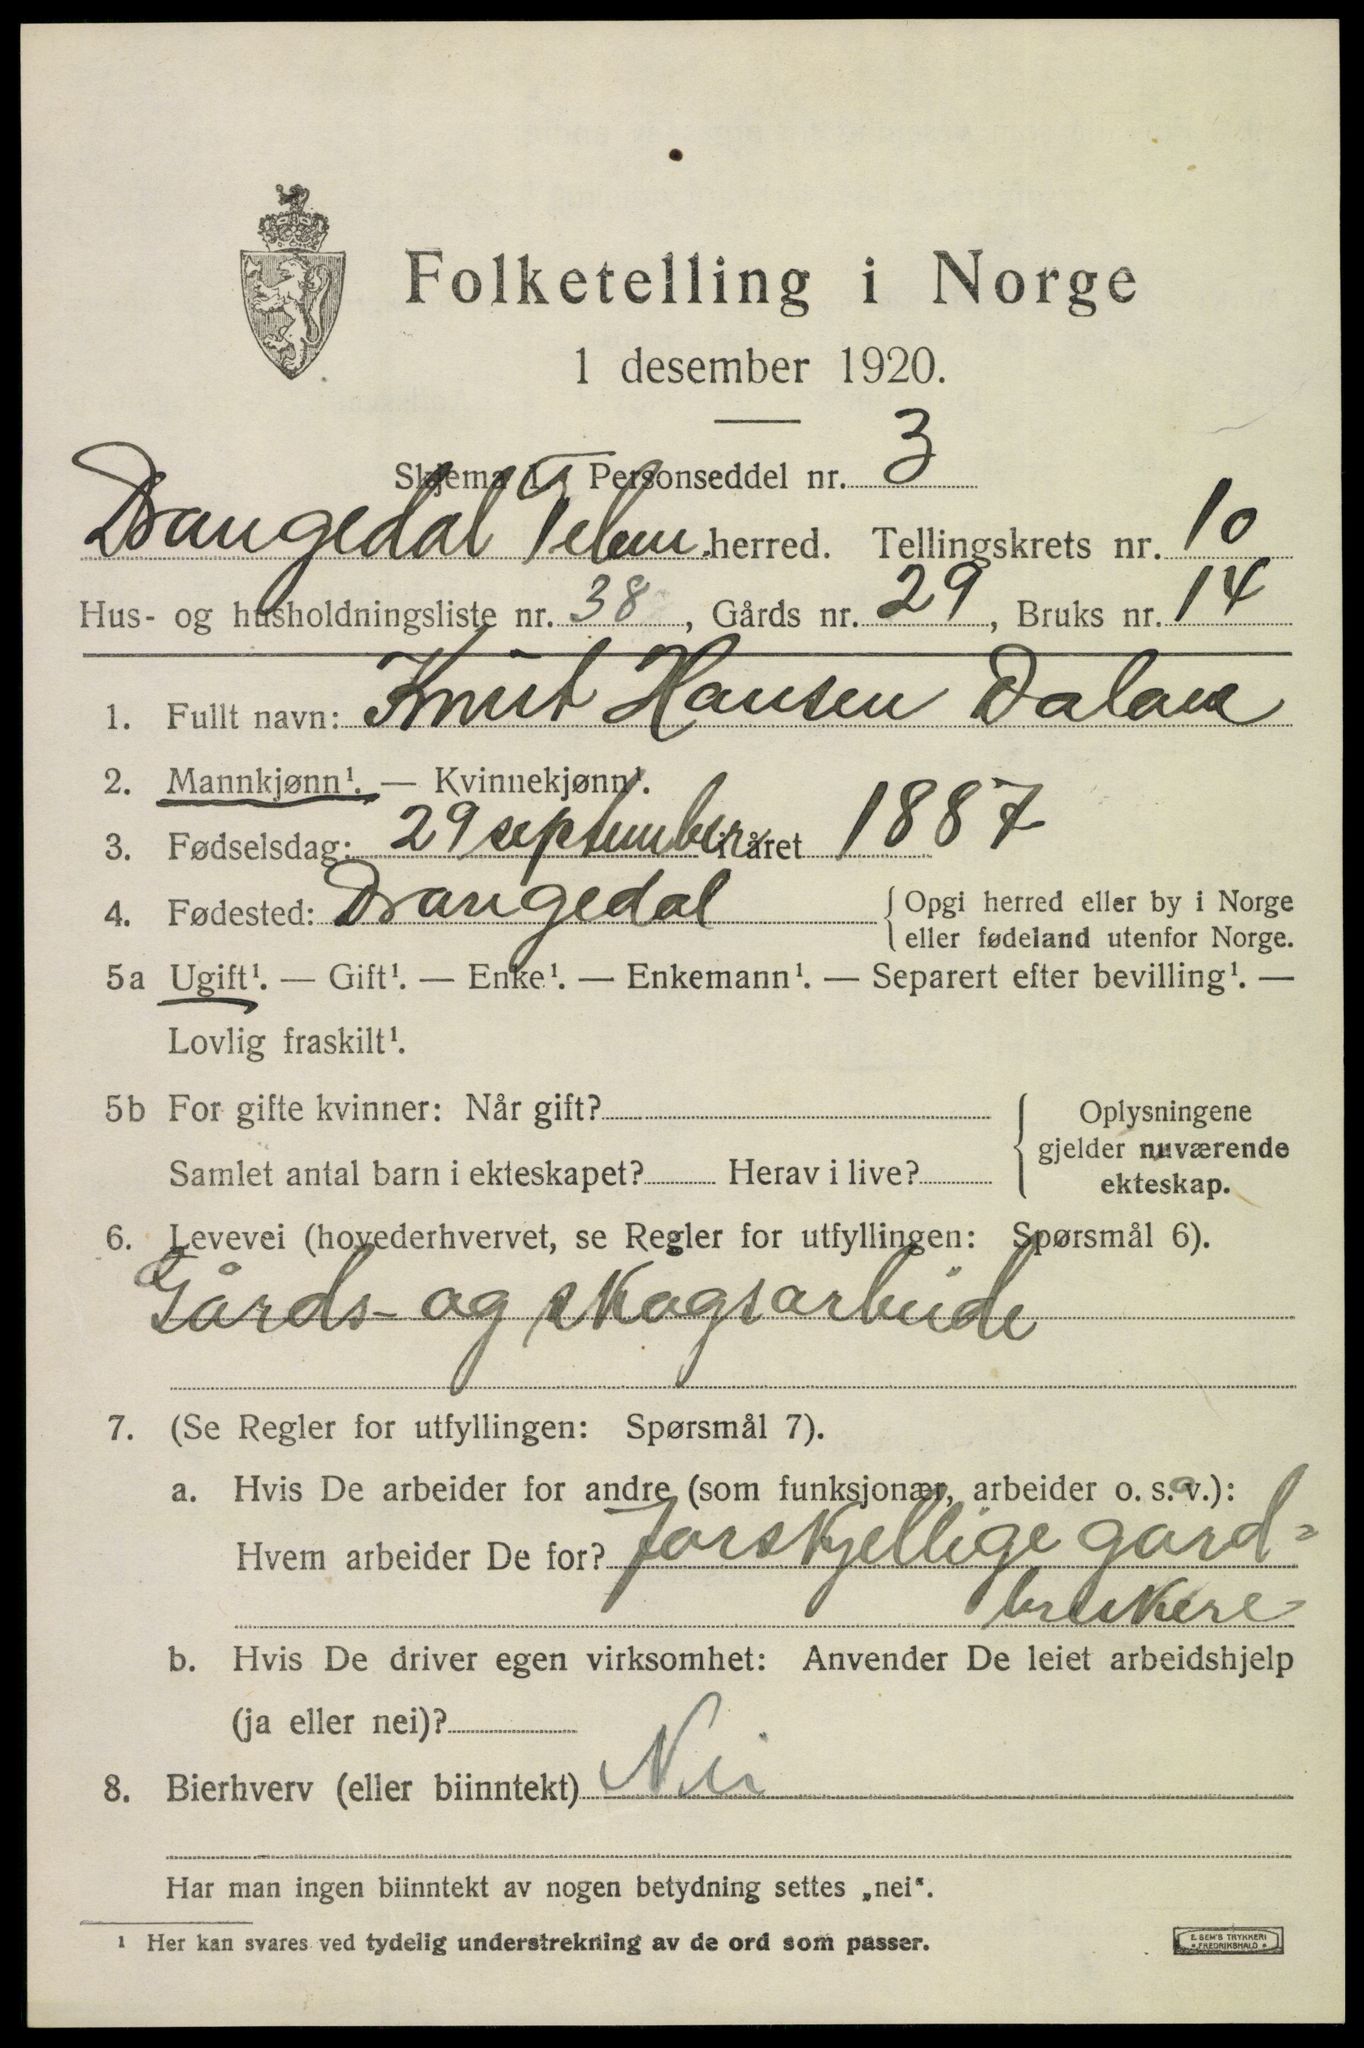 Folketelling i Norge
1 desember 1920.
Skjema 1. Personseddel nr. 3
Drangedal Telem. herred. Tellingskrets nr. 10
Hus- og husholdningsliste nr. 38, Gårds nr. 29, Bruks nr. 14
1. Fullt navn: Knut Hansen Dalane
2. Mannkjønn¹. — Kvinnekjønn¹.
3. Fødselsdag: 29 september i året 1887
4. Fødested: Drangedal { Opgi herred eller by i Norge
eller fødeland utenfor Norge.
5a Ugift¹. — Gift¹. — Enke¹. — Enkemann¹. — Separert efter bevilling¹. —
Lovlig fraskilt¹.
5b For gifte kvinner: Når gift? { Oplysningene
gjelder nuværende
Samlet antal barn i ekteskapet? Herav i live? ekteskap.
6. Levevei (hovederhvervet, se Regler for utfyllingen: Spørsmål 6).
Gårds- og skogsarbeide
7. (Se Regler for utfyllingen: Spørsmål 7).
a. Hvis De arbeider for andre (som funksjonær, arbeider o. s. v.):
Hvem arbeider De for? forskjellige gard-
brukere
b. Hvis De driver egen virksomhet: Anvender De leiet arbeidshjelp
(ja eller nei)?
8. Bierhverv (eller biinntekt) Nei
Har man ingen biinntekt av nogen betydning settes „nei“.
¹ Her kan svares ved tydelig understrekning av de ord som passer.
E. SEM'S TRYKKERI
FREDRIKSHALD